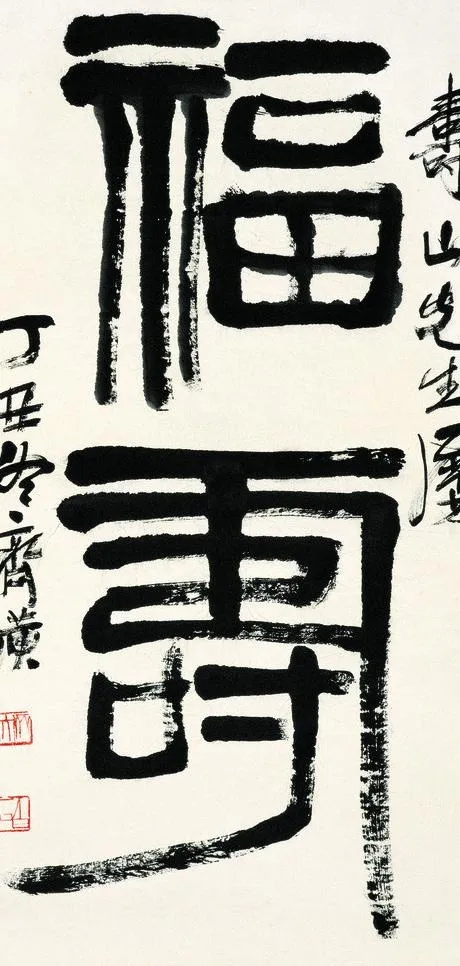 壽山先生
福壽
丁丑冬齊璜